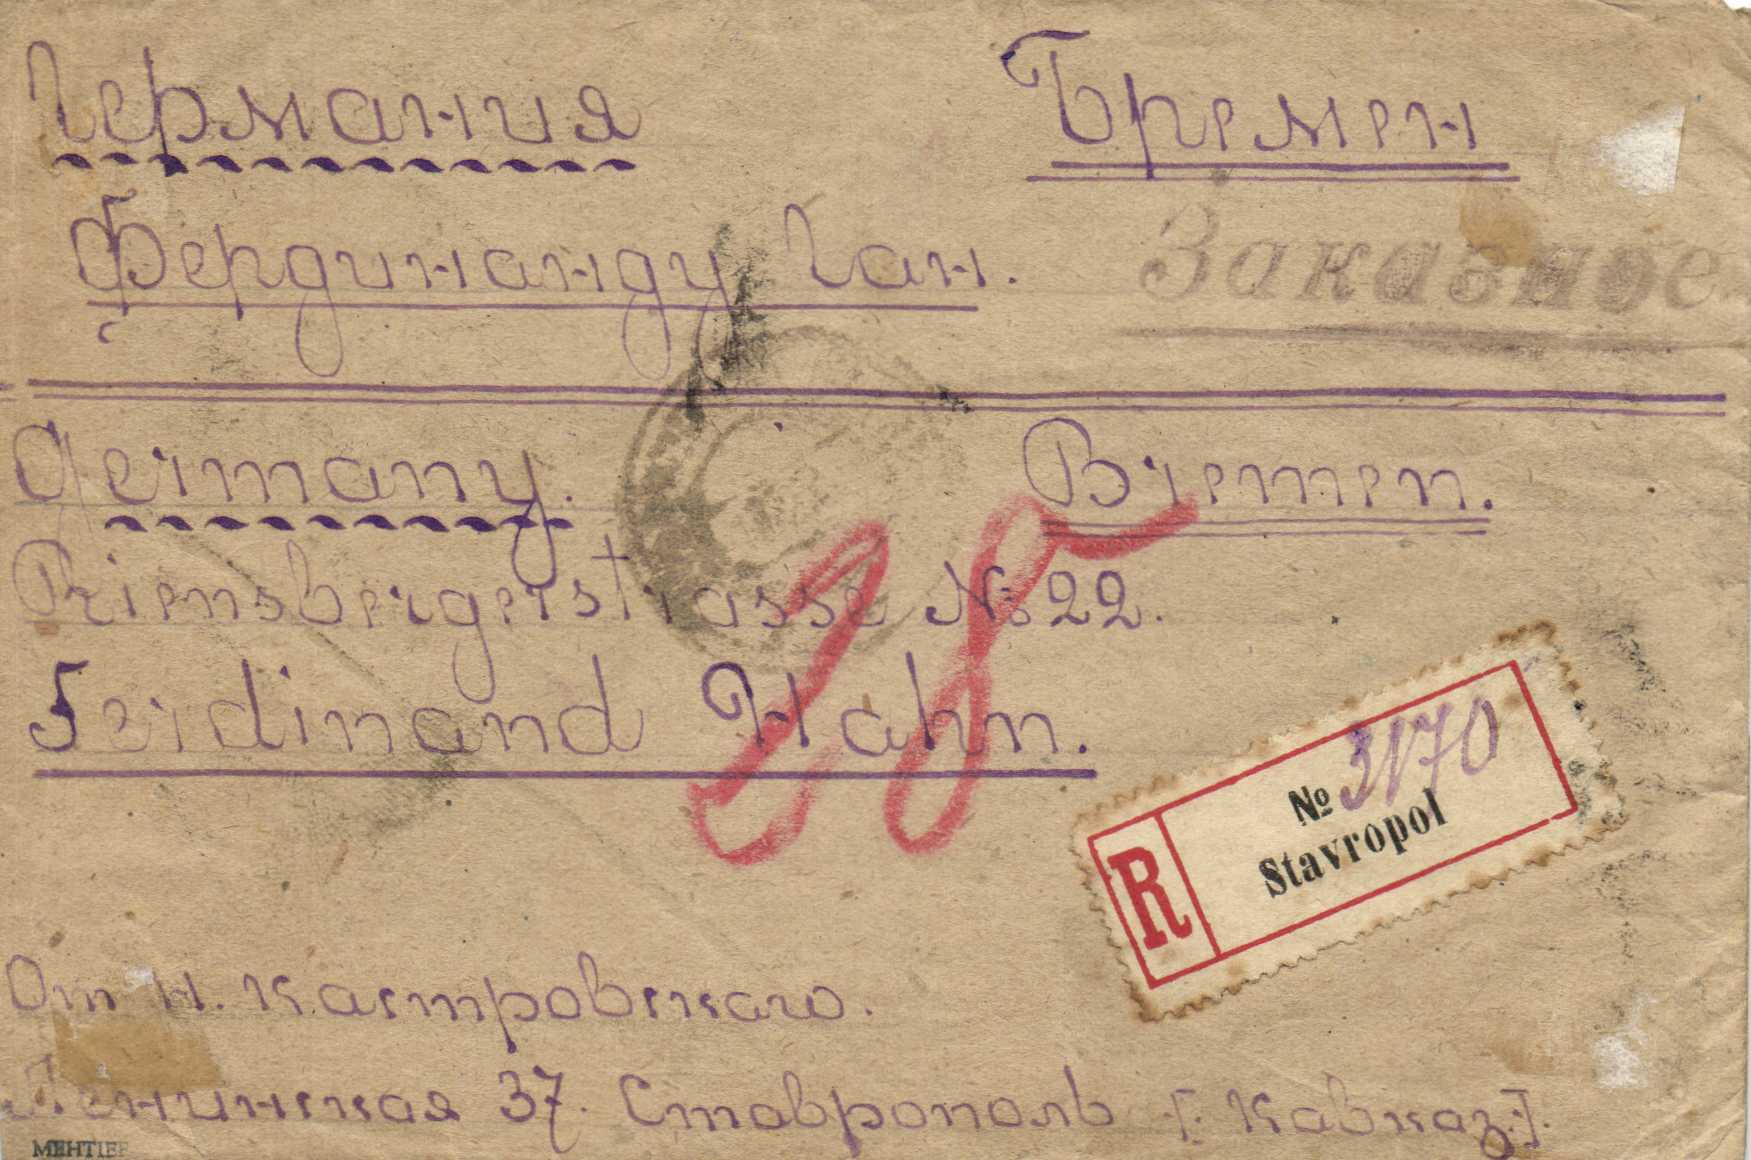 Германия Бремен
Фердинанду Ган.
Заказное
Germany. Bremen.
Riensbergerstrasse № 22.
Ferdinand Hahn.
18
R № 3170
Stavropol
От Н. Кастровского.
Ленинская 37. Ставрополь [Кавказ].